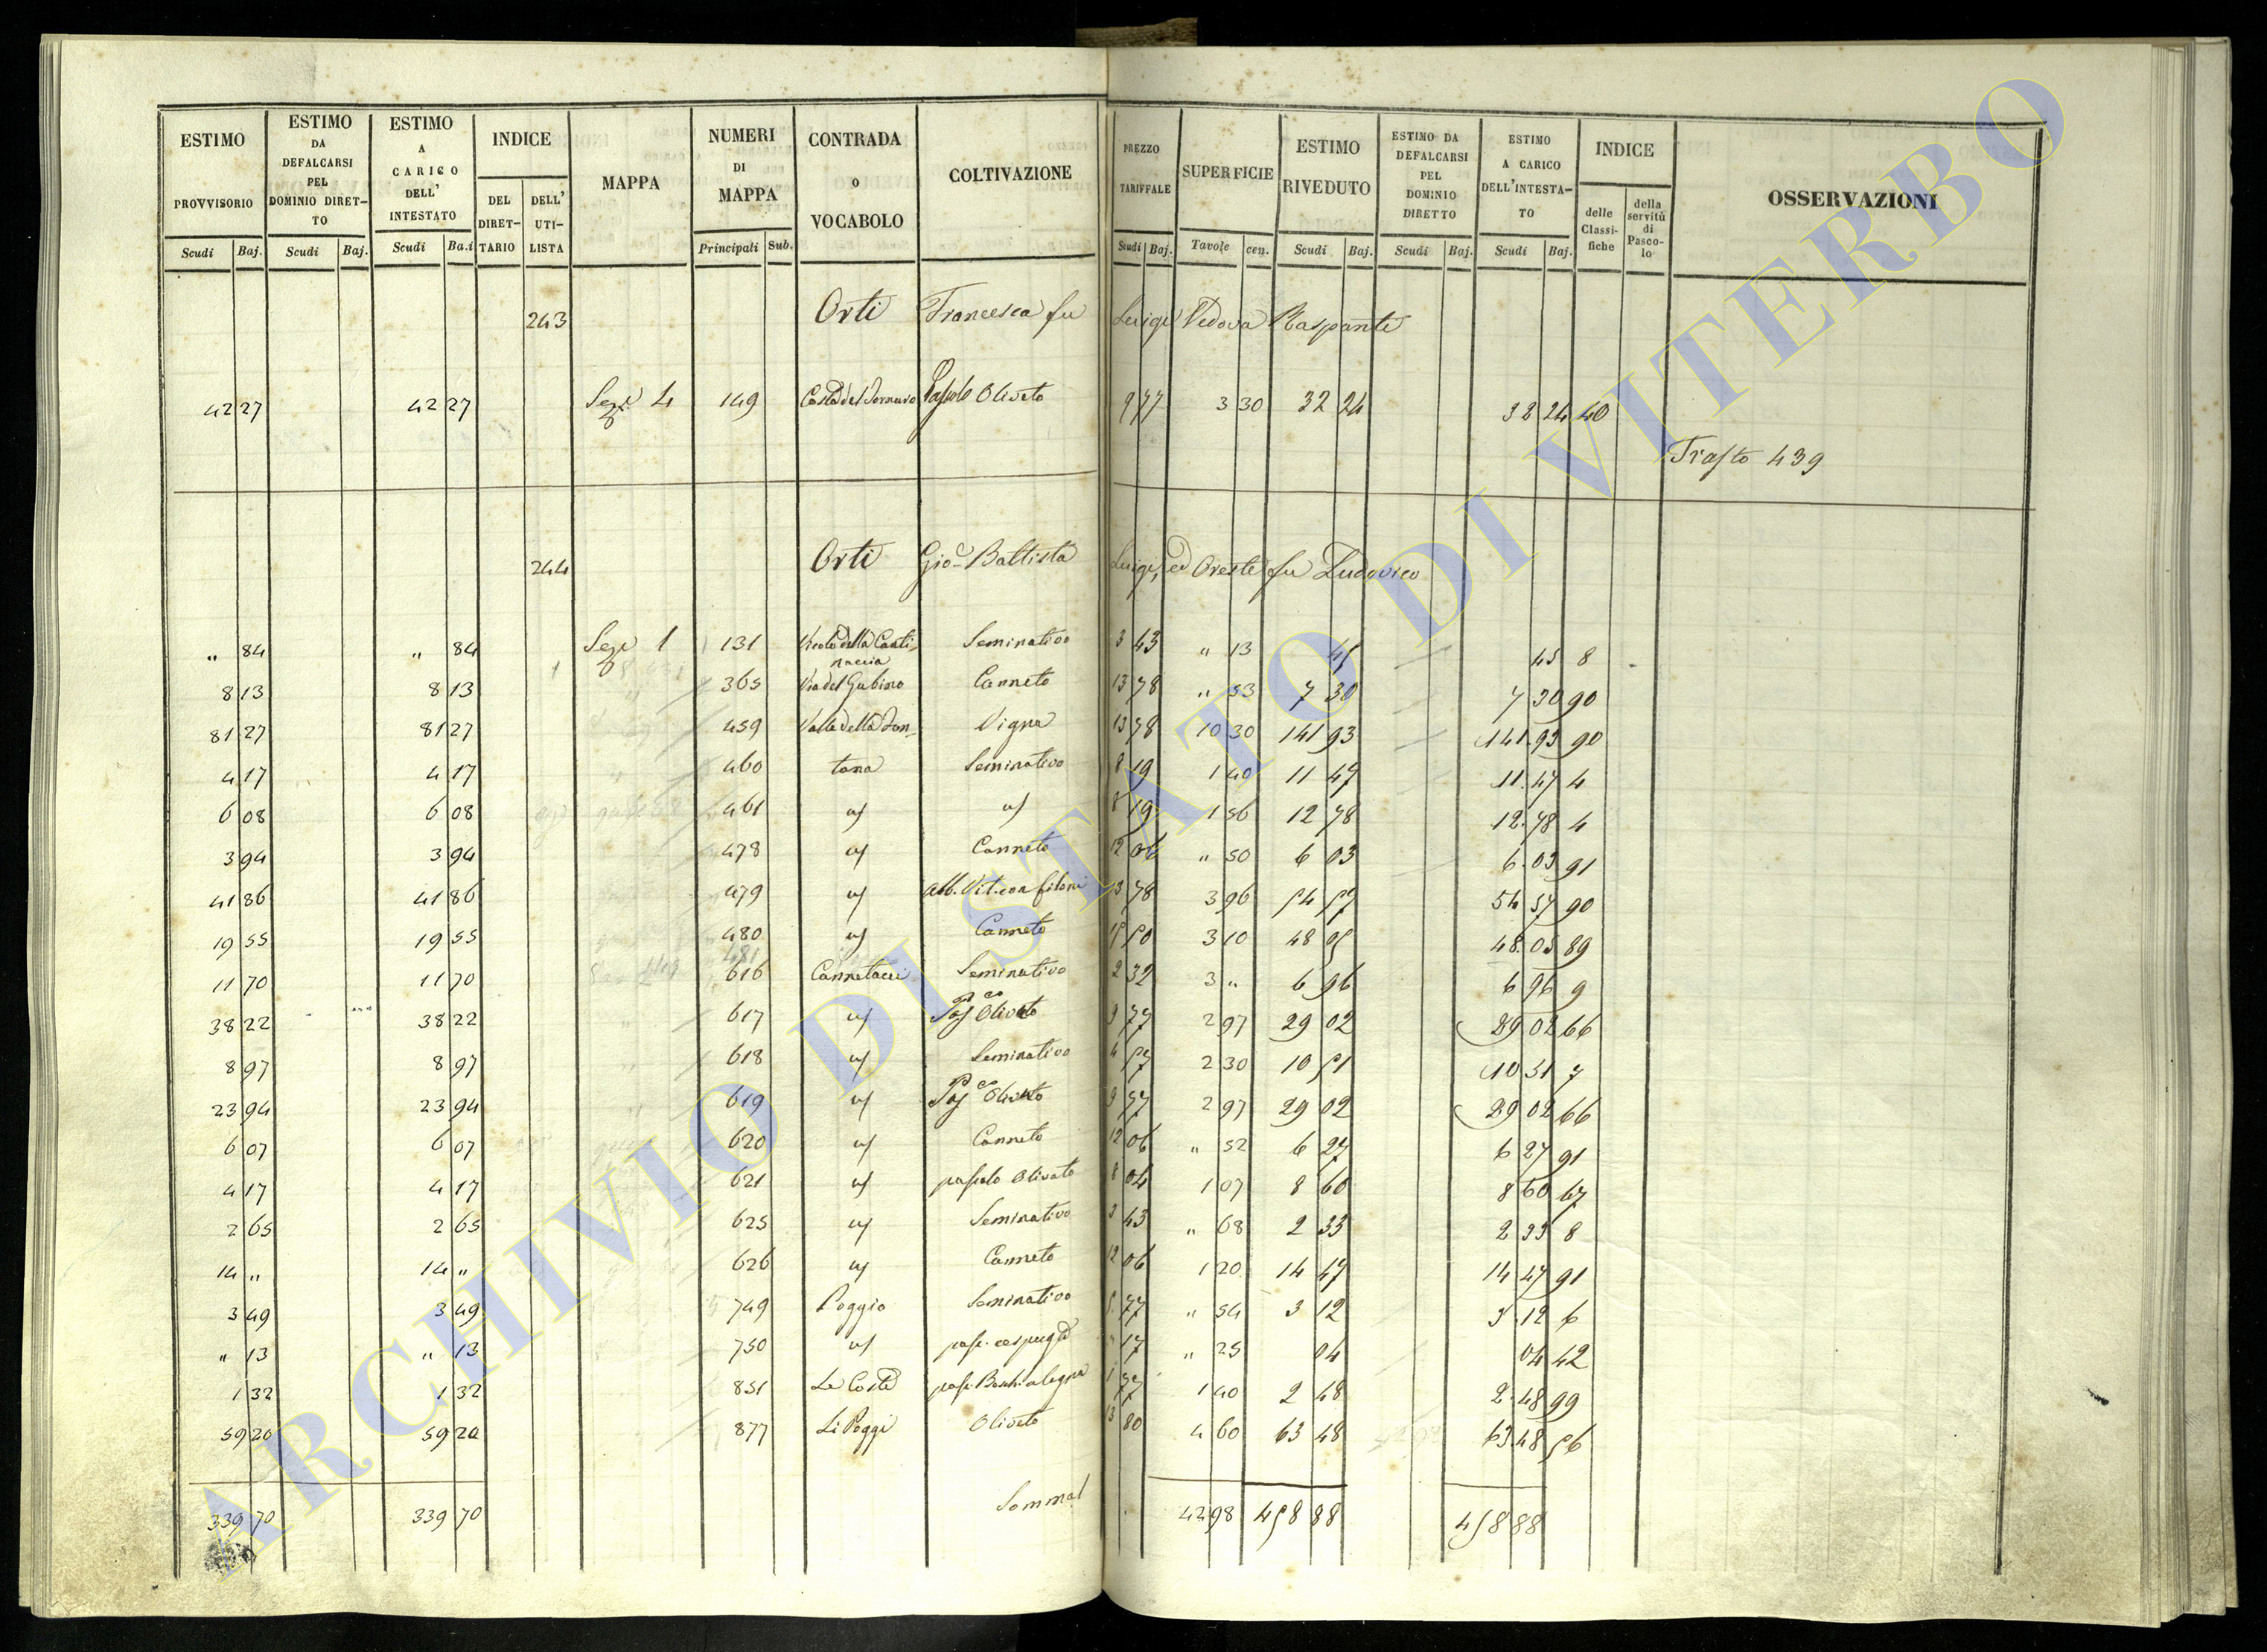 ESTIMO PROVVISORIO | ESTIMO DA DEFALCARSI PEL DOMINIO DIRET-TO | ESTIMO A CARICO DELL' INTESTATO | INDICE | MAPPA | NUMERI DI MAPPA | CONTRADA O VOCABOLO | COLTIVAZIONE | PREZZO TARIFFALE | SUPERFICIE | ESTIMO RIVEDUTO | ESTIMO DA DEFALCARSI PEL DOMINIO DIRETTO | ESTIMO A CARICO DELL'INTESTA-TO | INDICE | OSSERVAZIONI
Scudi Baj. | Scudi Baj. | Scudi Ba.i | DEL DIRET-TARIO | DELL' UTI-LISTA | Principali Sub. | Scudi Baj. | Tavole cen. | Scudi Baj. | Scudi Baj. | Scudi Baj. | delle Classi-fiche | della servitù di Pasco-lo
243 Orti Francesca fu Luigi Vedova Raspanti
42 27 | 42 27 | Sez.e 4 | 149 | Costa del | Pascolo Olivato | 9 77 | 3 30 | 32 24 | 32 24 | 40
Trasto 439
244 Orti Gio. Battista Luigi, ed Oreste fu Ludovico
" 84 | " 84 | Sez.e 1 | 131 | Vicolo della Canti-naccia | Seminativo | 3 43 | " 13 | 45 | 45 | 8
8 13 | 8 13 | 365 | Via del Gubino | Canneto | 13 78 | " 53 | 7 30 | 7 30 | 90
81 27 | 81 27 | 459 | Valle della Fon- | Vigna | 13 78 | 10 30 | 141 93 | 141.93 | 90
4 17 | 4 17 | 460 | tana | Seminativo | 8 19 | 1 40 | 11 47 | 11.47 | 4
6 08 | 6 08 | 461 | a/ | a/ | 8 19 | 1 56 | 12 78 | 12.78 | 4
3 94 | 3 94 | 478 | a/ | Canneto | 12 06 | " 50 | 6 03 | 6.03 | 91
41 86 | 41 86 | 479 | a/ | alb. Vit. con filoni | 13 78 | 3 96 | 54 57 | 54 57 | 90
19 55 | 19 55 | 480 | a/ | Canneto | 15 50 | 3 10 | 48 05 | 48.05 | 89
481
11 70 | 11 70 | 616 | Cannetacci | Seminativo | 2 32 | 3 " | 6 96 | 6 96 | 9
38 22 | 38 22 | 617 | a/ | Pas.co Olivato | 9 77 | 2 97 | 29 02 | 29 02 | 66
8 97 | 8 97 | 618 | a/ | Seminativo | 4 57 | 2 30 | 10 51 | 10 51 | 7
23 94 | 23 94 | 619 | a/ | Pas.co Olivato | 9 77 | 2 97 | 29 02 | 29 02 | 66
6 07 | 6 07 | 620 | a/ | Canneto | 12 06 | " 52 | 6 27 | 6 27 | 91
4 17 | 4 17 | 621 | a/ | pascolo Olivato | 8 04 | 1 07 | 8 60 | 8 60 | 67
2 65 | 2 65 | 625 | a/ | Seminativo | 3 43 | " 68 | 2 33 | 2 33 | 8
14 " | 14 " | 626 | a/ | Canneto | 12 06 | 1 20 | 14 47 | 14 47 | 91
3 49 | 3 49 | 749 | Poggio | Seminativo | 5 77 | " 54 | 3 12 | 3.12 | 6
" 13 | " 13 | 750 | a/ | pasc. cespugl.o | 17 | " 25 | 04 | 04 | 42
1 32 | 1 32 | 851 | Le Coste | 1 77 | 1 40 | 2 48 | 2.48 | 99
59 20 | 59 20 | 877 | Li Poggi | Oliveto | 13 80 | 4 60 | 63 48 | 63.48 | 56
339 70 | 339 70 | Somma | 42 98 | 458 88 | 458 88
ARCHIVIO DI STATO DI VITERBO